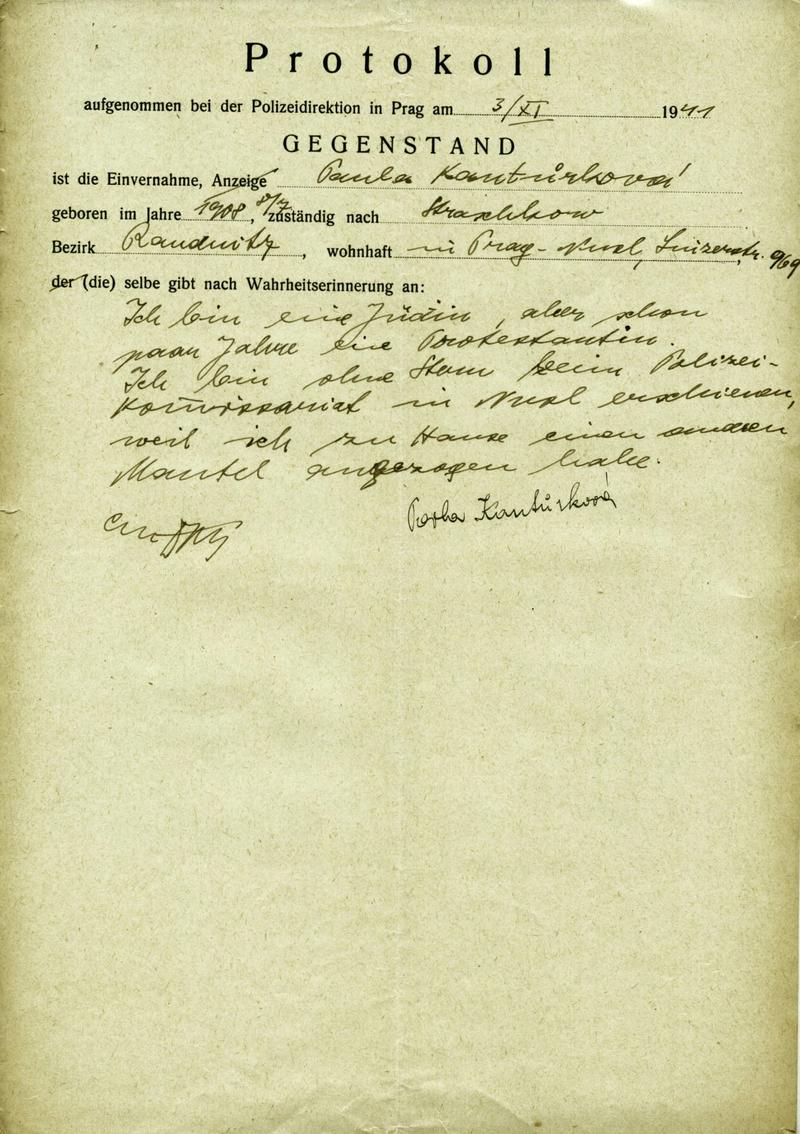 Protokoll
aufgenommen bei der Polizeidirektion in Prag am 3/XI 1941
GEGENSTAND
ist die Einvernahme, Anzeige Paula Kantůrková
geboren im Jahre 1908, 8/7 zuständig nach Straschkow
Bezirk Raudnitz, wohnhaft in Prag-Nusl,
der (die) selbe gibt nach Wahrheitserinnerung an:
Ich bin eine Jüdin, aber schon
paar Jahre eie Protestantin.
Ich bin ohne Stern beim Polizei-
Kommissariat in Nusl erschienen,
weil ich zu Hause einen anderen
Mantel angezogen habe.
Kantůrková